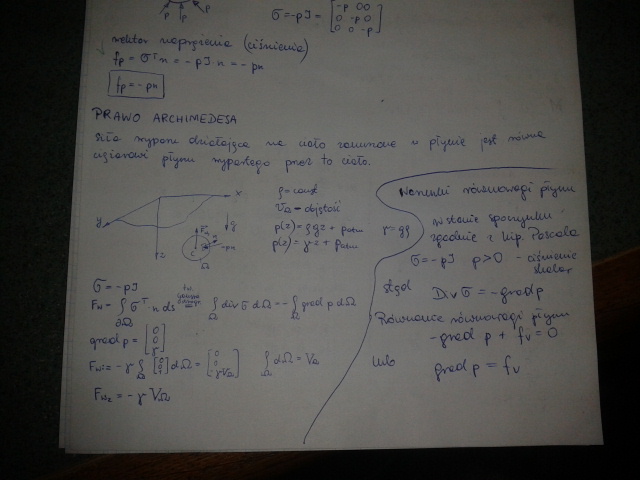 p p p
σ = -pI = [-p 0 0
0 -p 0
0 0 -p]
wektor naprężenia (ciśnienia)
fp = σᵀn = -pI·n = -pn
fp = -pn
PRAWO ARCHIMEDESA
Siła wyporu działająca na ciało zanurzone w płynie jest równa
ciężarowi płynu wypartego przez to ciało.
x
y
z
g
n
-pn
C
Ω
ρ = const
V_Ω - objętość
p(z) = ρgz + patm
p(z) = γz + patm
γ = gρ
σ = -pI
Fw = ∫∂Ω σᵀ n ds = ∫Ω div σ dΩ = -∫Ω grad p dΩ
grad p = [0 0 γ]
Fw = -γ ∫Ω [0 0 1] dΩ = [0 0 -γV_Ω] ∫Ω dΩ = V_Ω
Fwz = -γ V_Ω
Warunki równowagi płynu
w stanie spoczynku,
zgodnie z hip. Pascala
σ = -pI p>0 - ciśnienie
skalar
stąd Div σ = -grad p
Równanie równowagi płynu
-grad p + fv = 0
lub grad p = fv